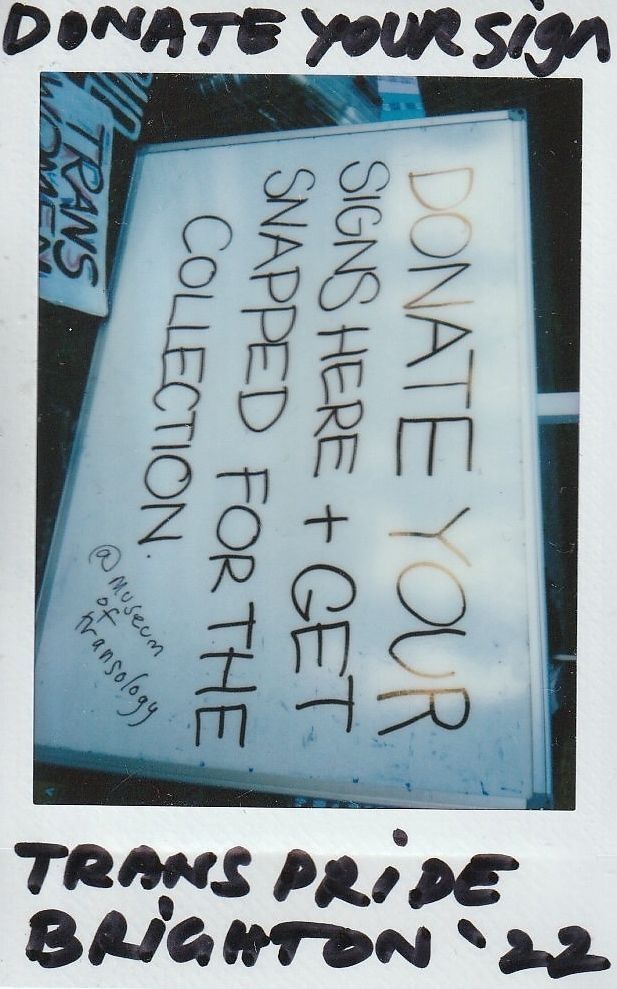 DONATE YOUR SIGN
DONATE YOUR
SIGNS HERE + GET
SNAPPED FOR THE
COLLECTION.
@museum
of
transology
TRANS
WOMEN
TRANS PRIDE
BRIGHTON '22